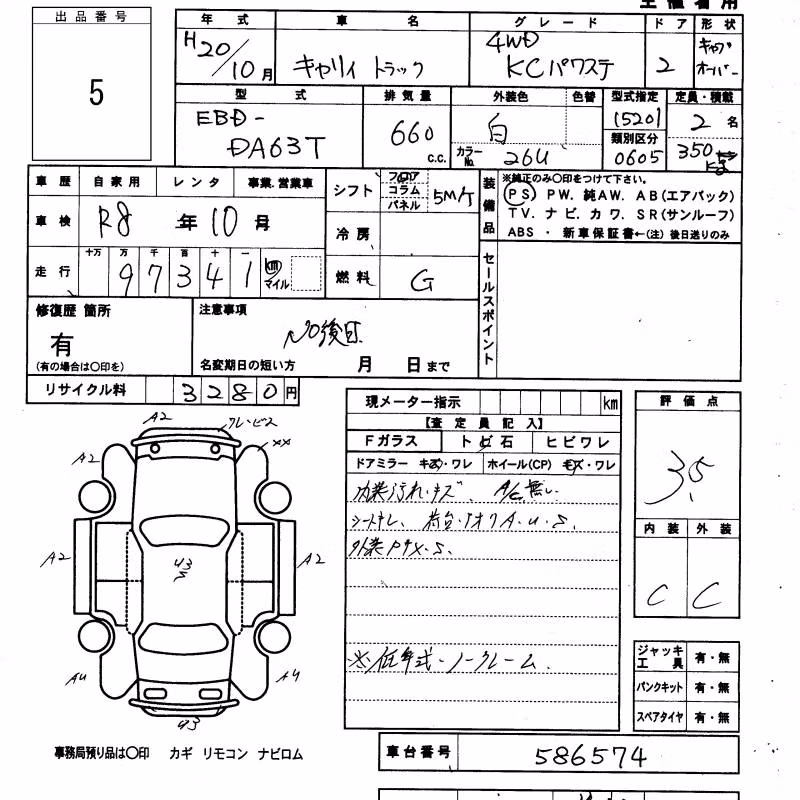 出品番号
5
年式 車名 グレード ドア 形状
H20/10月 キャリィ トラック 4WD KCパワステ 2 キャブオーバー
型式 排気量 外装色 色替 型式指定 定員・積載
EBD-DA63T 660 c.c. 白 カラーNo. 26U 15201 2名
類別区分
0605 350
車歴 自家用 レンタ 事業.営業車
シフト フロア コラム パネル 5M/T
装備品
※純正のみ〇印をつけて下さい。
PS PW. 純AW. AB(エアバック)
TV. ナビ. カワ. SR(サンルーフ)
ABS・新車保証書←(注) 後日送りのみ
車検 R8年10月
冷房
走行 十万 万 千 百 十 一
97341 km マイル
燃料 G
セールスポイント
修復歴 箇所
有
(有の場合は〇印を)
注意事項
No後日
名変期日の短い方 月 日まで
リサイクル料 3280円
現メーター指示 km
【査定員記入】
Fガラス トビ石 ヒビワレ
ドアミラー キズ・ワレ ホイール(CP) キズ・ワレ
内装汚れ・キズ、A/C無し.
シートキレ、荷台・アオリA・U・S.
外装Pキズ・S.
※低年式・ノークレーム.
評価点
3.5
内装 外装
C C
ジャッキ工具 有・無
パンクキット 有・無
スペアタイヤ 有・無
A2
クレ・ビス
A2
XX
A2
A2
A4
A4
事務局預り品は〇印 カギ リモコン ナビロム
車台番号 586574